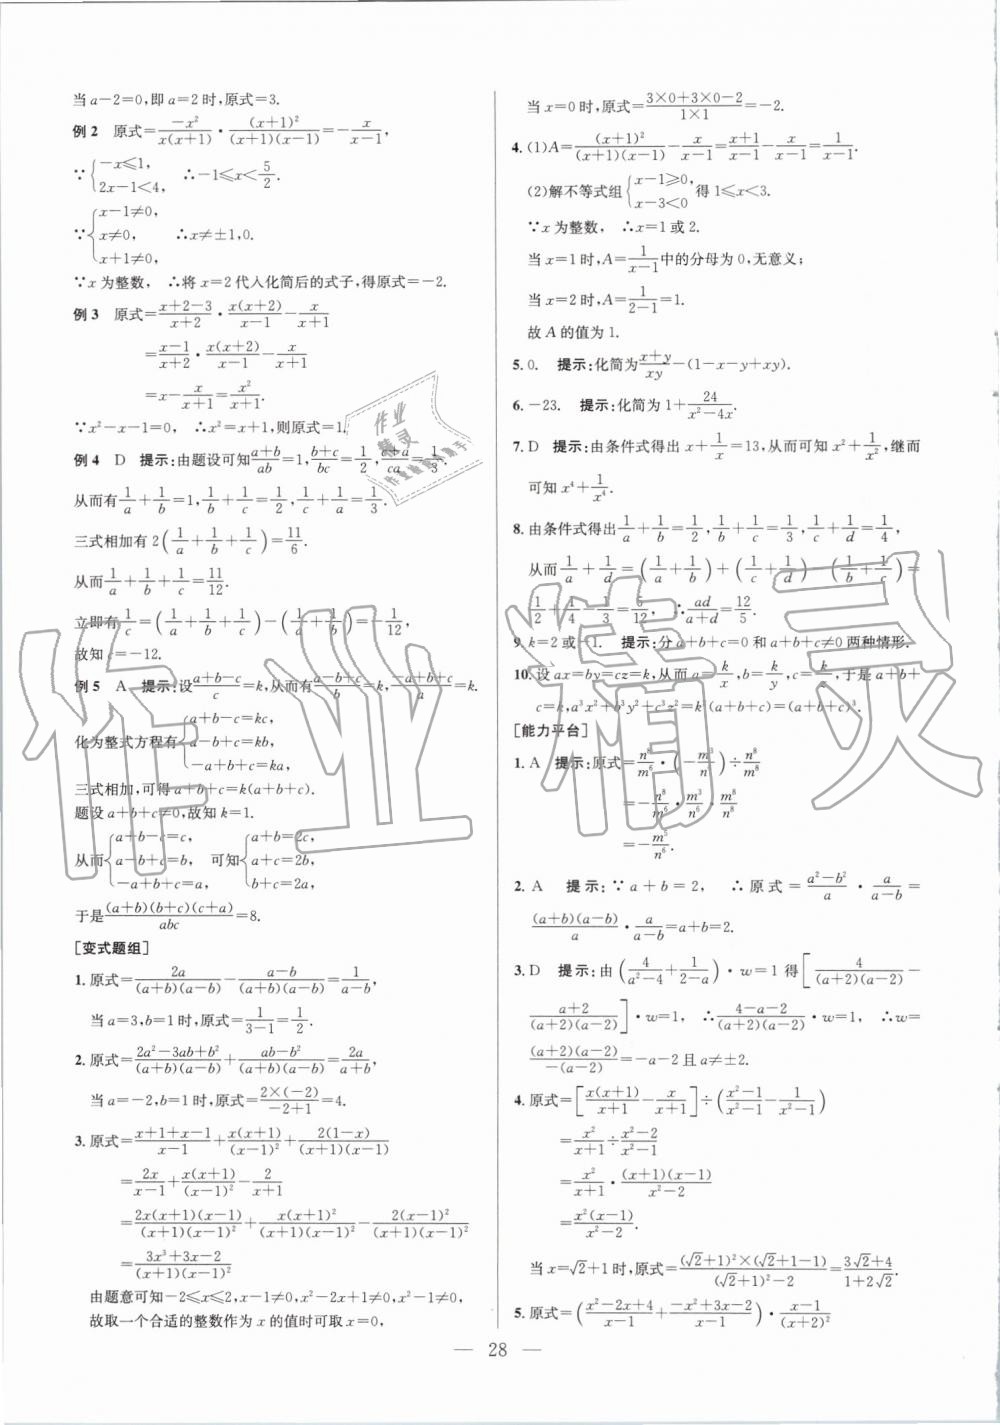 当a−2=0,即a=2时,原式=3.
例2 原式=\frac{-x²}{x(x+1)}·\frac{(x+1)²}{(x+1)(x−1)}=−\frac{x}{x−1},
∵{−x⩽1, 2x−1<4, ∴−1⩽x<\frac{5}{2}.
∵{x−1≠0, x≠0, x+1≠0, ∴x≠±1,0.
∵x为整数, ∴将x=2代入化简后的式子,得原式=−2.
例3 原式=\frac{x+2−3}{x+2}·\frac{x(x+2)}{x−1}−\frac{x}{x+1}
=\frac{x−1}{x+2}·\frac{x(x+2)}{x−1}−\frac{x}{x+1}
=x−\frac{x}{x+1}=\frac{x²}{x+1}.
∵x²−x−1=0, ∴x²=x+1,则原式=1.
例4 D 提示:由题设可知\frac{a+b}{ab}=1,\frac{b+c}{bc}=\frac{1}{2},\frac{c+a}{ca}=\frac{1}{3}.
从而有\frac{1}{a}+\frac{1}{b}=1,\frac{1}{b}+\frac{1}{c}=\frac{1}{2},\frac{1}{c}+\frac{1}{a}=\frac{1}{3}.
三式相加有2(\frac{1}{a}+\frac{1}{b}+\frac{1}{c})=\frac{11}{6}.
从而\frac{1}{a}+\frac{1}{b}+\frac{1}{c}=\frac{11}{12}.
立即有\frac{1}{c}=(\frac{1}{a}+\frac{1}{b}+\frac{1}{c})−(\frac{1}{a}+\frac{1}{b})=−\frac{1}{12},
故知c=−12.
例5 A 提示:设\frac{a+b−c}{c}=k,从而有\frac{a−b+c}{b}=k,\frac{−a+b+c}{a}=k.
化为整式方程有{a+b−c=kc, a−b+c=kb, −a+b+c=ka,
三式相加,可得a+b+c=k(a+b+c).
题设a+b+c≠0,故知k=1.
从而{a+b−c=c, a−b+c=b, −a+b+c=a, 可知{a+b=2c, a+c=2b, b+c=2a,
于是\frac{(a+b)(b+c)(c+a)}{abc}=8.
[变式题组]
1. 原式=\frac{2a}{(a+b)(a−b)}−\frac{a−b}{(a+b)(a−b)}=\frac{1}{a−b},
当a=3,b=1时,原式=\frac{1}{3−1}=\frac{1}{2}.
2. 原式=\frac{2a²−3ab+b²}{(a+b)(a−b)}+\frac{ab−b²}{(a+b)(a−b)}=\frac{2a}{a+b},
当a=−2,b=1时,原式=\frac{2×(−2)}{−2+1}=4.
3. 原式=\frac{x+1+x−1}{x−1}+\frac{x(x+1)}{(x−1)²}+\frac{2(1−x)}{(x+1)(x−1)}
=\frac{2x}{x−1}+\frac{x(x+1)}{(x−1)²}−\frac{2}{x+1}
=\frac{2x(x+1)(x−1)}{(x+1)(x−1)²}+\frac{x(x+1)²}{(x+1)(x−1)²}−\frac{2(x−1)²}{(x+1)(x−1)²}
=\frac{3x³+3x−2}{(x+1)(x−1)²}
由题意可知−2⩽x⩽2,x−1≠0,x²−2x+1≠0,x²−1≠0,
故取一个合适的整数作为x的值时可取x=0,
当x=0时,原式=\frac{3×0+3×0−2}{1×1}=−2.
4. (1)A=\frac{(x+1)²}{(x+1)(x−1)}−\frac{x}{x−1}=\frac{x+1}{x−1}−\frac{x}{x−1}=\frac{1}{x−1}.
(2)解不等式组{x−1⩾0, x−3<0 得1⩽x<3.
∵x为整数, ∴x=1或2.
当x=1时,A=\frac{1}{x−1}中的分母为0,无意义;
当x=2时,A=\frac{1}{2−1}=1.
故A的值为1.
5. 0. 提示:化简为\frac{x+y}{xy}−(1−x−y+xy).
6. −23. 提示:化简为1+\frac{24}{x²−4x}.
7. D 提示:由条件式得出x+\frac{1}{x}=13,从而可知x²+\frac{1}{x²},继而
可知x⁴+\frac{1}{x⁴}.
8. 由条件式得出\frac{1}{a}+\frac{1}{b}=\frac{1}{2},\frac{1}{b}+\frac{1}{c}=\frac{1}{3},\frac{1}{c}+\frac{1}{d}=\frac{1}{4},
从而\frac{1}{a}+\frac{1}{d}=(\frac{1}{a}+\frac{1}{b})+(\frac{1}{c}+\frac{1}{d})−(\frac{1}{b}+\frac{1}{c})=
\frac{1}{2}+\frac{1}{4}−\frac{1}{3}=\frac{5}{12}, ∴\frac{ad}{a+d}=\frac{12}{5}.
9. k=2或−1. 提示:分a+b+c=0和a+b+c≠0两种情形.
10. 设ax=by=cz=k,从而a=\frac{k}{x},b=\frac{k}{y},c=\frac{k}{z},于是a+b+
c=k,a³x²+b³y²+c³z²=k²(a+b+c)=(a+b+c)³.
[能力平台]
1. A 提示:原式=\frac{n⁸}{m⁶}·(−\frac{m³}{n⁶})÷\frac{n⁸}{m⁸}
=−\frac{n⁸}{m⁶}·\frac{m³}{n⁶}·\frac{m⁸}{n⁸}
=−\frac{m⁵}{n⁶}.
2. A 提示:∵a+b=2, ∴原式=\frac{a²−b²}{a}·\frac{a}{a−b}=
\frac{(a+b)(a−b)}{a}·\frac{a}{a−b}=a+b=2.
3. D 提示:由(\frac{4}{a²−4}+\frac{1}{2−a})·w=1得[\frac{4}{(a+2)(a−2)}−
\frac{a+2}{(a+2)(a−2)}]·w=1, ∴\frac{4−a−2}{(a+2)(a−2)}·w=1, ∴w=
\frac{(a+2)(a−2)}{−(a−2)}=−a−2且a≠±2.
4. 原式=[\frac{x(x+1)}{x+1}−\frac{x}{x+1}]÷(\frac{x²−1}{x²−1}−\frac{1}{x²−1})
=\frac{x²}{x+1}÷\frac{x²−2}{x²−1}
=\frac{x²}{x+1}·\frac{(x+1)(x−1)}{x²−2}
=\frac{x²(x−1)}{x²−2}.
当x=√2+1时,原式=\frac{(√2+1)²×(√2+1−1)}{(√2+1)²−2}=\frac{3√2+4}{1+2√2}.
5. 原式=(\frac{x²−2x+4}{x−1}+\frac{−x²+3x−2}{x−1})·\frac{x−1}{(x+2)²}
— 28 —
作业精灵